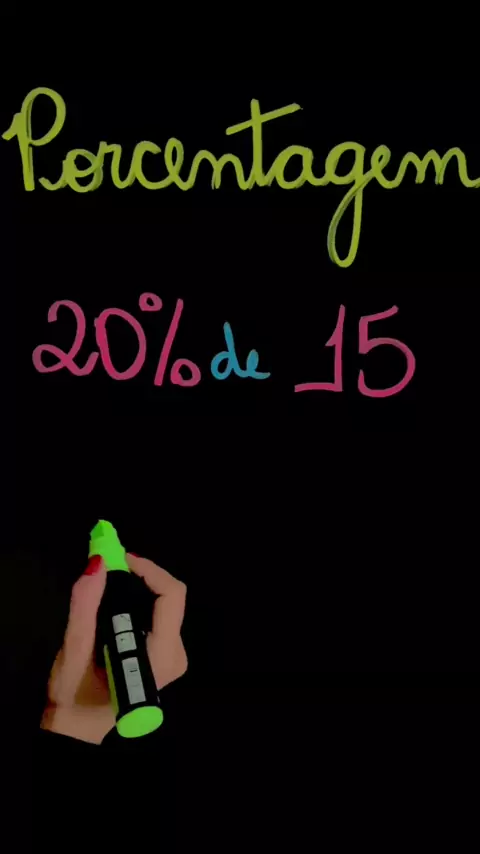 Porcentagem
20% de 15